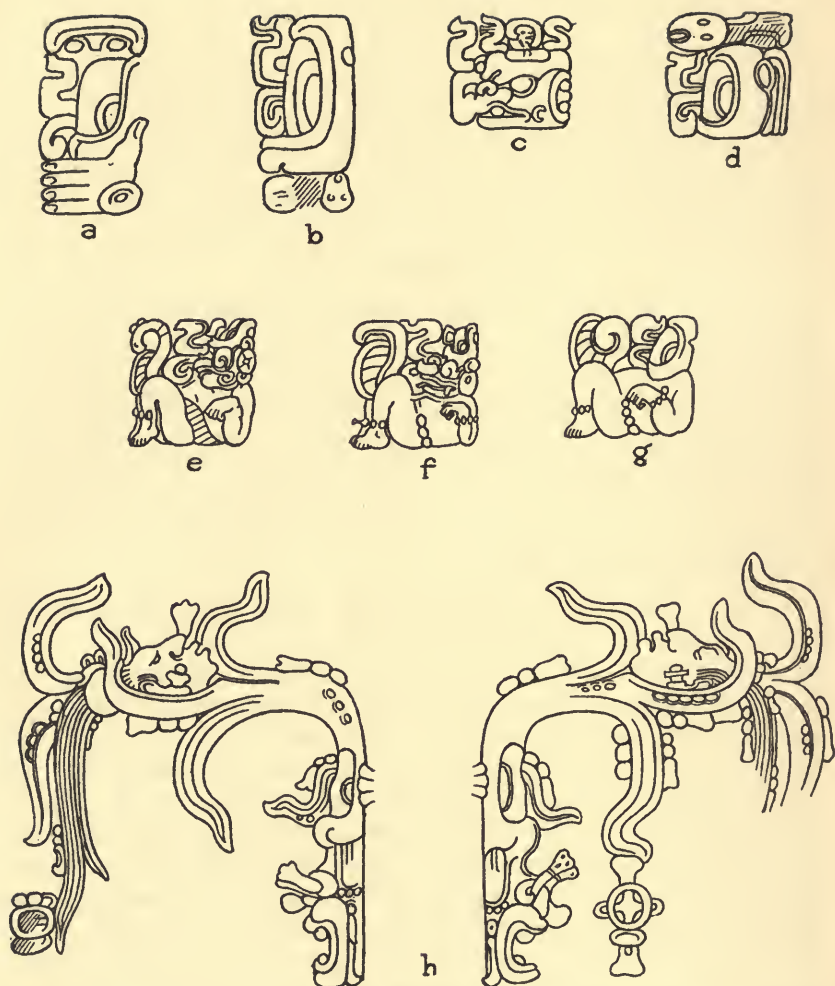 a b c d
e f g
h